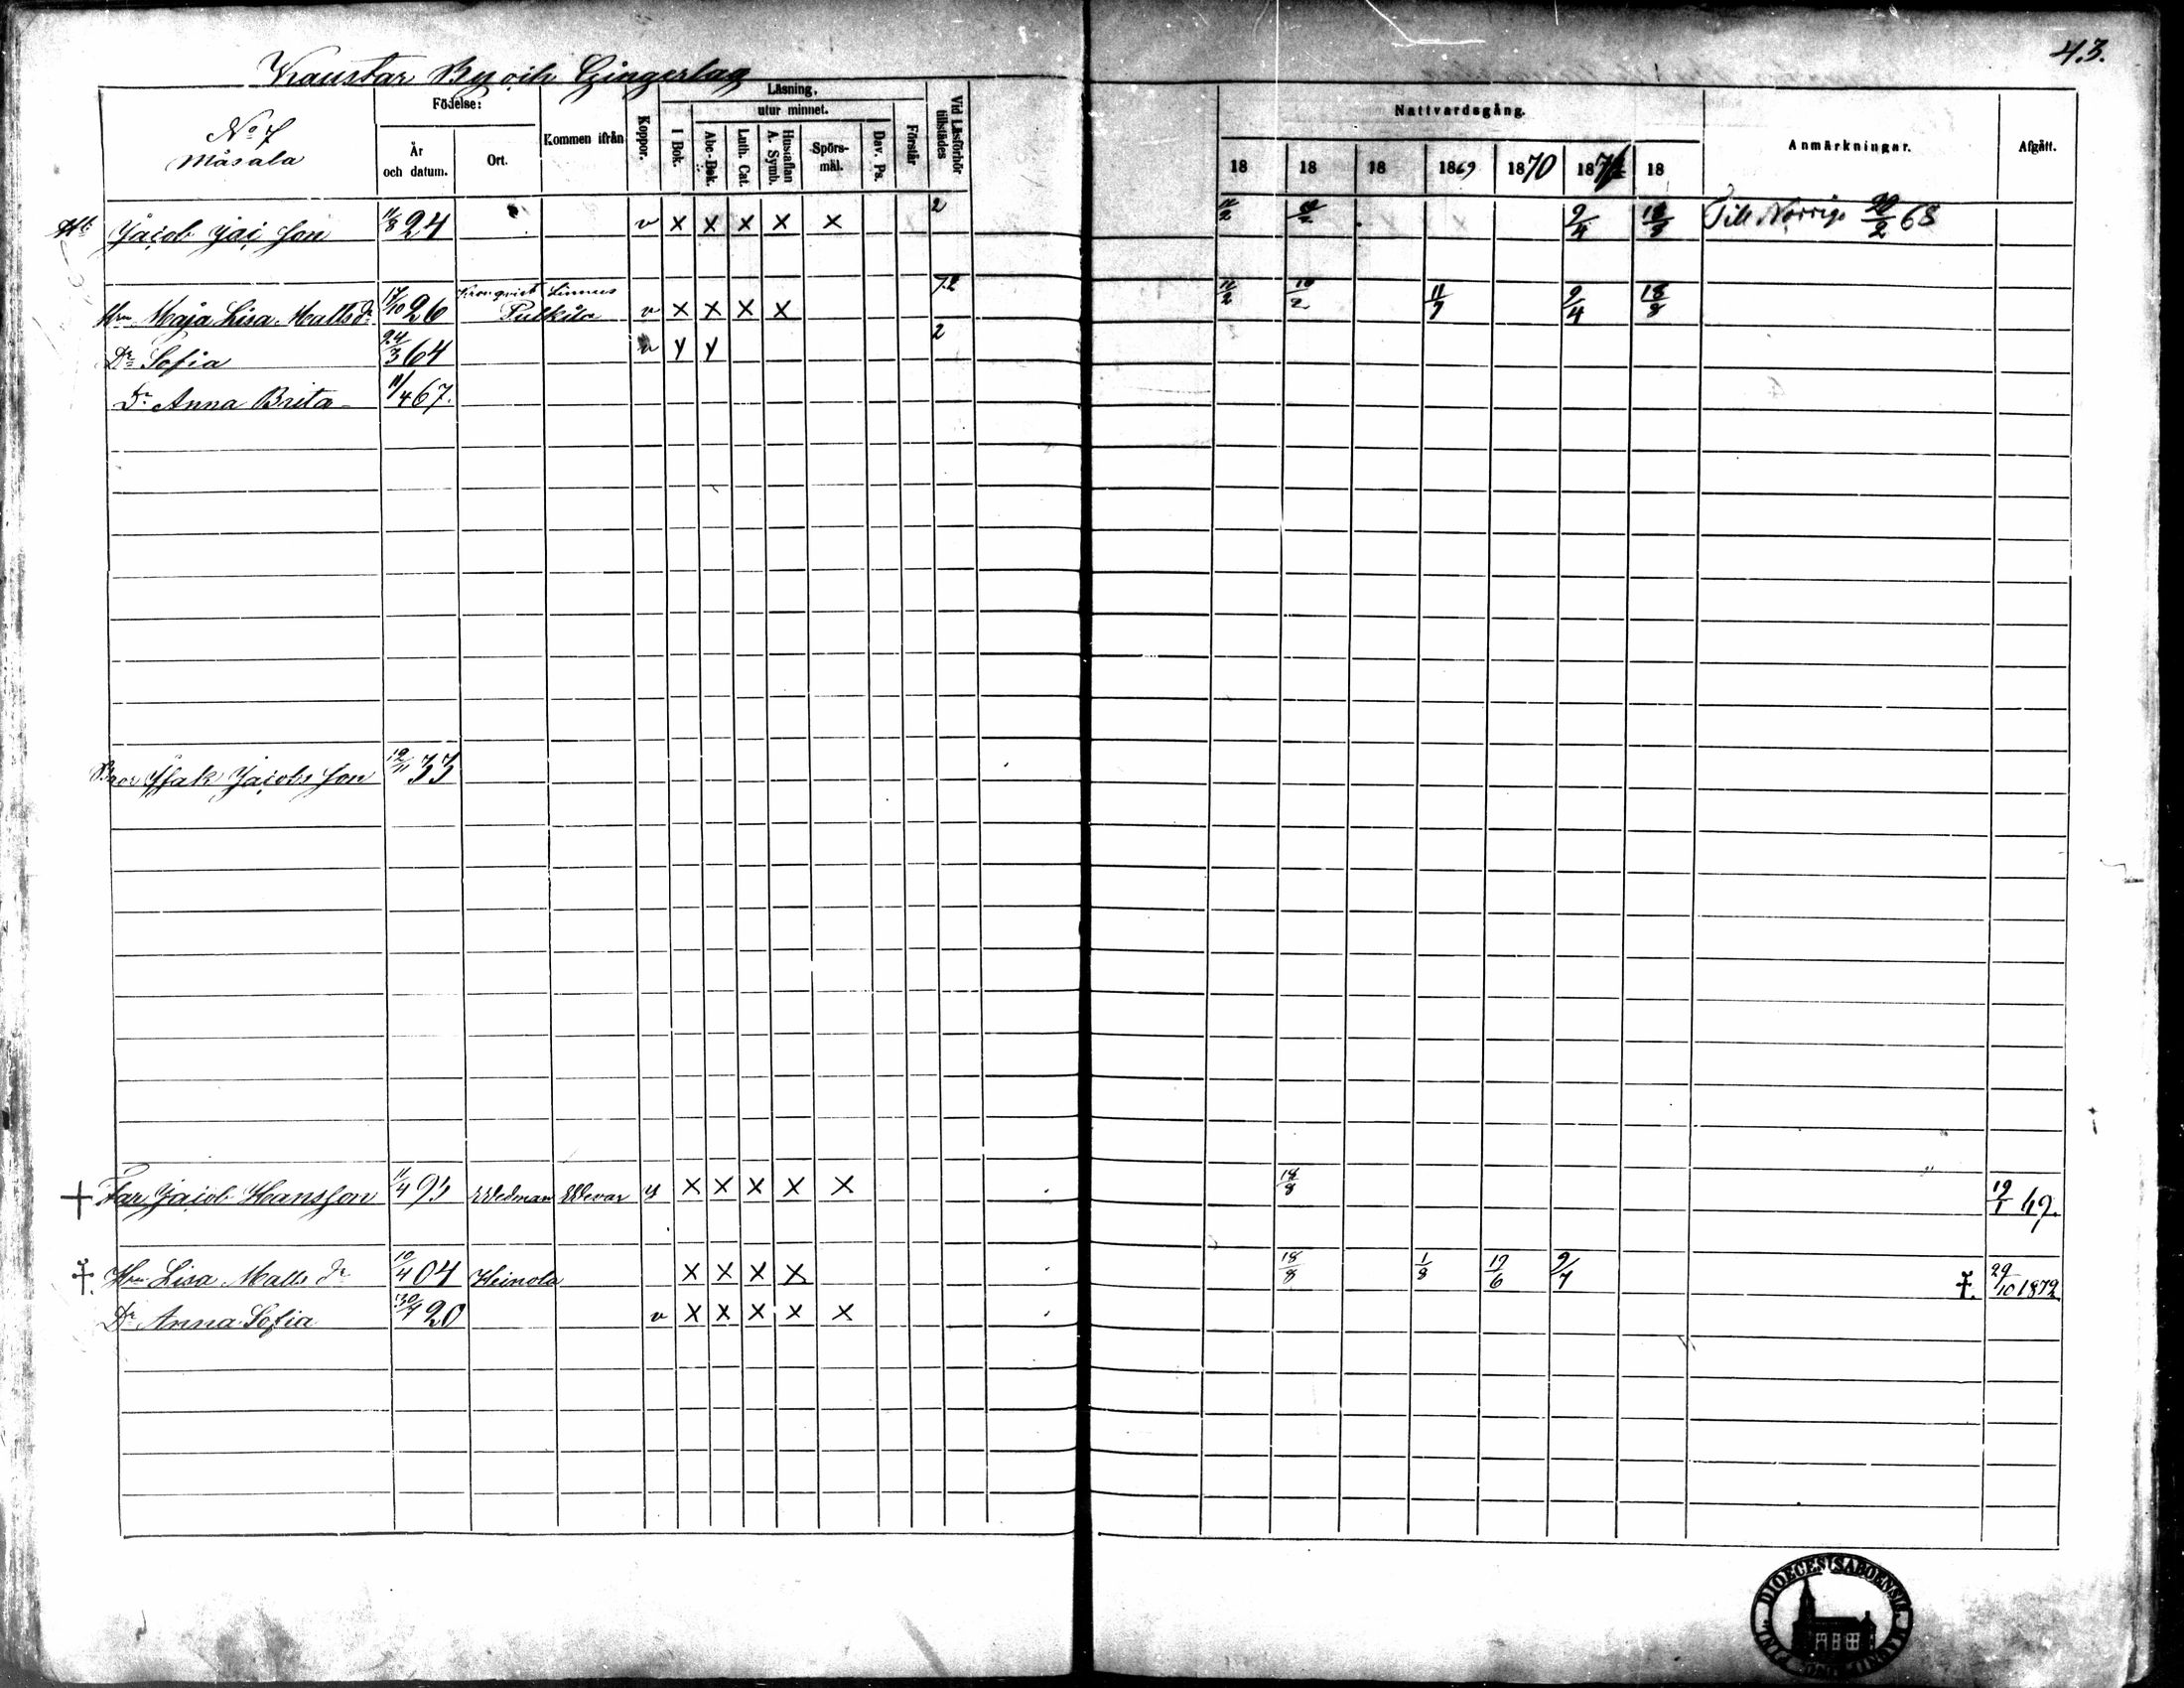 43.
Kaustar By och Gingerlag
No 7
Måsala
Födelse:
År
och datum.
Ort.
Kommen ifrån
Koppor.
Läsning,
utur minnet.
I Bok.
Abc-Bok.
Luth. Cat.
Hustaflan
A. Symb.
Spörs-
mål.
Dav. Ps.
Förstår
Vid Läsförhör
tillstädes
Nattvardsgång.
18 18 18 1869 1870 1871 18
Anmärkningar.
Afgått.
Jacob Jac Son 11/8 24 v x x x x x 2 2/4 Till Norrige 68
Hru Maja Lisa Mattsdr 17/10 26 Pulkila v x x x x 2/4 18/8
Dr Sofia 24/3 64 v y y 2
Dr Anna Brita 11/4 67.
Bror Isak Jacobs Son 33
+ Far Jacob Hansson 11/4 93 Wedman Wevar x x x x x 18/8 19/1 69.
+ Hru Lisa Matts dr 10/4 04 Heinola x x x x 18/8 1/8 +. 29/10 1872
Dr Anna Sofia 20 v x x x x x
DIOECESIS ABOENSIS